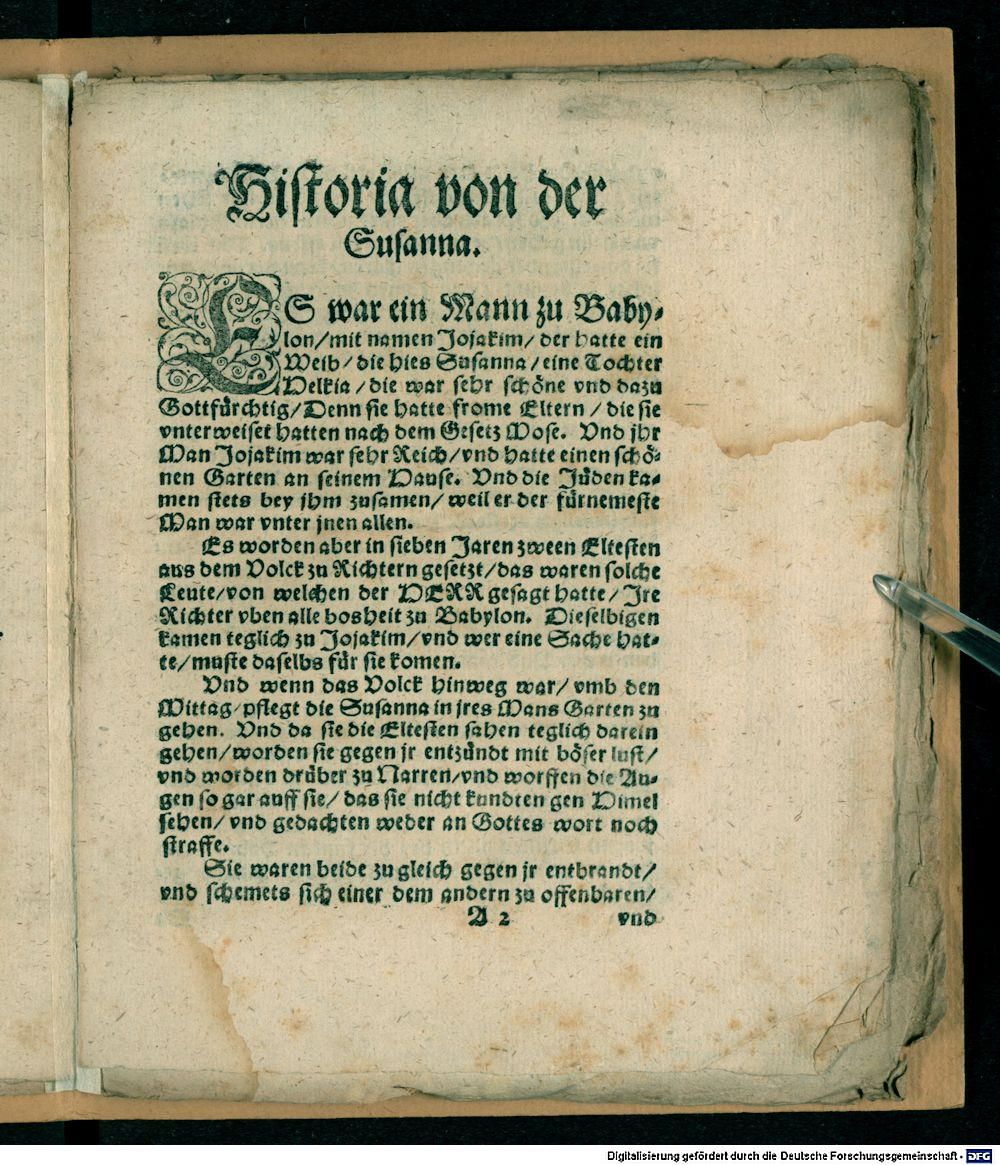 Historia von der
Susanna.
ES war ein Mann zu Baby-
lon/mit namen Jojakim/ der hatte ein
Weib/ die hies Susanna/ eine Tochter
Helkia/ die war sehr schöne vnd dazu
Gottfürchtig/ Denn sie hatte frome Eltern/ die sie
vnterweiset hatten nach dem Gesetz Mose. Vnd jhr
Man Jojakim war sehr Reich/ vnd hatte einen schö-
nen Garten an seinem Hause. Vnd die Jüden ka-
men stets bey jhm zusamen/ weil er der fürnemeste
Man war vnter jnen allen.
Es worden aber in sieben Jaren zween Eltesten
aus dem Volck zu Richtern gesetzt/ das waren solche
Leute/ von welchen der HERR gesagt hatte/ Jre
Richter vben alle bosheit zu Babylon. Dieselbigen
kamen teglich zu Jojakim/ vnd wer eine Sache hat-
te/ muste daselbs für sie komen.
Vnd wenn das Volck hinweg war/ vmb den
Mittag/ pflegt die Susanna in jres Mans Garten zu
gehen. Vnd da sie die Eltesten sahen teglich darein
gehen/ worden sie gegen jr entzündt mit böser lust/
vnd worden drüber zu Narren/ vnd worffen die Au-
gen so gar auff sie/ das sie nicht kundten gen Himel
sehen/ vnd gedachten weder an Gottes wort noch
straffe.
Sie waren beide zu gleich gegen jr entbrandt/
vnd schemets sich einer dem andern zu offenbaren/
A 2 vnd
Digitalisierung gefördert durch die Deutsche Forschungsgemeinschaft - DFG